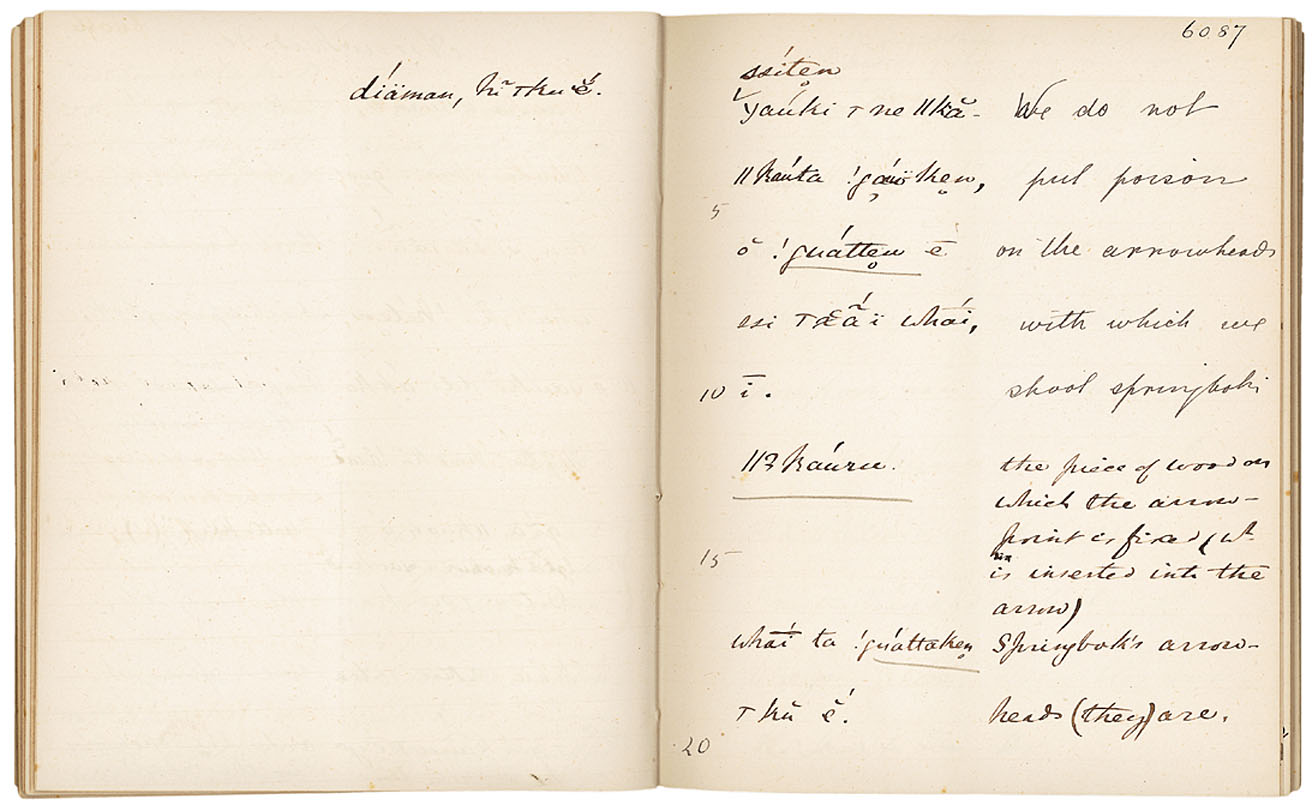 díäman, hĭ ꞇku é̆.
6087
ssíten̥
yaúki ꞇ ne ǁkă- We do not
ǁkaúta ǃgaúöken̥, put poison
5
ŏ ǃguátten̥ ē on the arrowheads
ssi ꞇx̆ā̃ï whaí, with which we
10 ī. shoot springbok
ǁkaúru. the piece of wood on
which the arrow-
point is fixed (wh.
15
is inserted into the
arrow)
whaí ta ǃguáttaken̥ Springbok's arrow-
ꞇ kŭ é̆. heads (they) are.
20